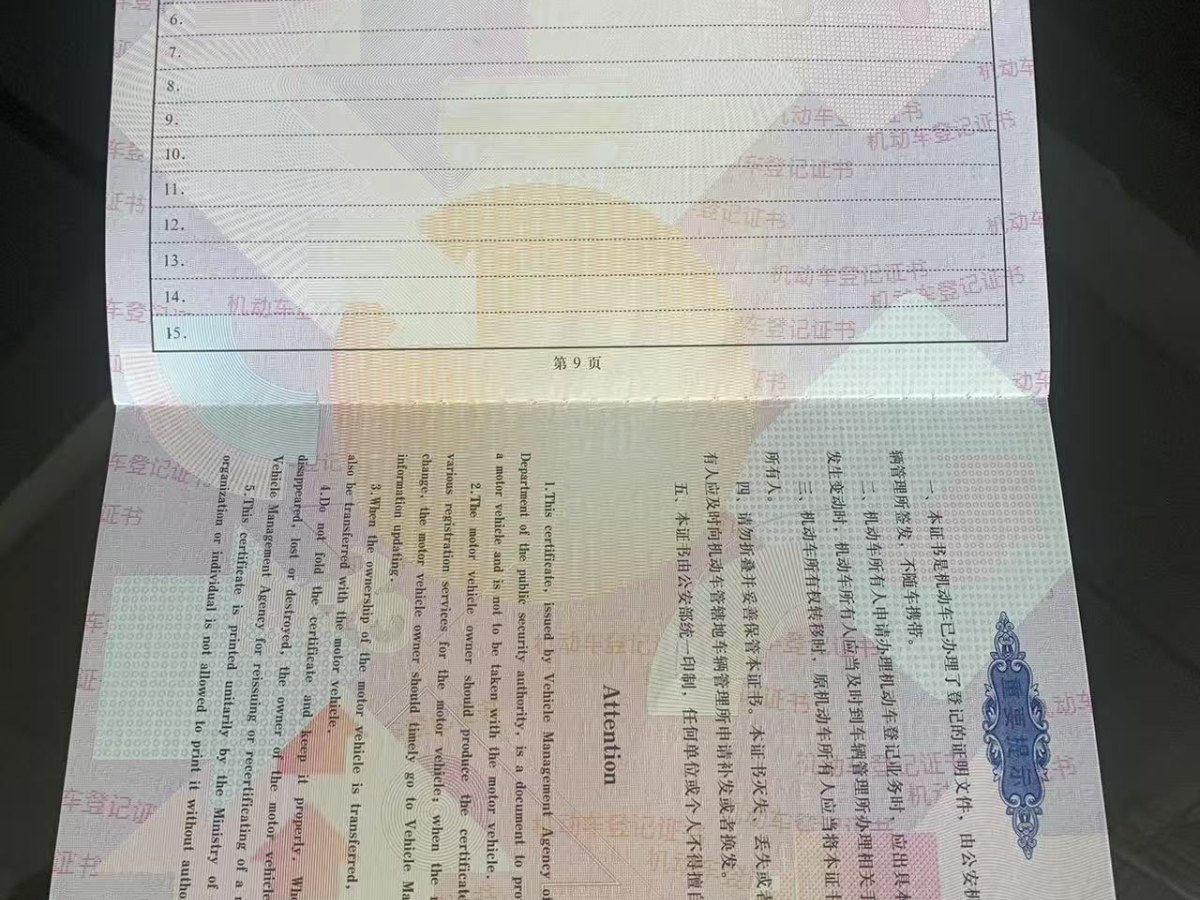 6.
7.
8.
9.
10.
11.
12.
13.
14.
15.
第 9 页
重要提示
一、本证书是机动车已办理了登记的证明文件，由公安机
辆管理所签发，不随车携带。
二、机动车所有人申请办理机动车登记业务时，应出具本
发生变动时，机动车所有人应当及时到车辆管理所办理相关手
三、机动车所有权转移时，原机动车所有人应当将本证书
所有人。
四、请勿折叠并妥善保管本证书。本证书灭失、丢失或者
有人应及时向机动车管辖地车辆管理所申请补发或者换发。
五、本证书由公安部统一印制，任何单位或个人不得擅自
Attention
1.This certificate, issued by Vehicle Management Agency of
Department of the public security authority, is a document to pro
a motor vehicle and is not to be taken with the motor vehicle.
2.The motor vehicle owner should produce the certificate
various registration services for the motor vehicle; when the r
change, the motor vehicle owner should timely go to Vehicle Ma
information updating.
3.When the ownership of the motor vehicle is transferred,
also be transferred with the motor vehicle.
4.Do not fold the certificate and keep it properly. Whe
disappeared, lost or destroyed, the owner of the motor vehicle
Vehicle Management Agency for reissuing or recertificating of a
5.This certificate is printed unitarily by the Ministry of
organization or individual is not allowed to print it without autho
机动车登记证书
机动车登记证书
机动车登记证书